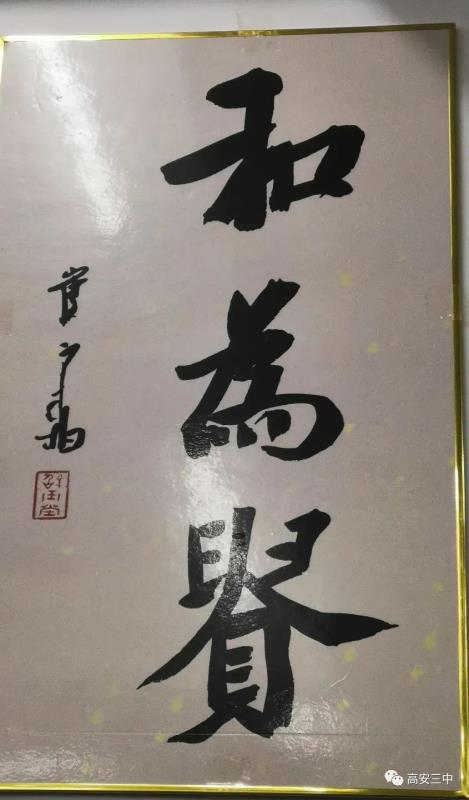 和為賢
高安三中